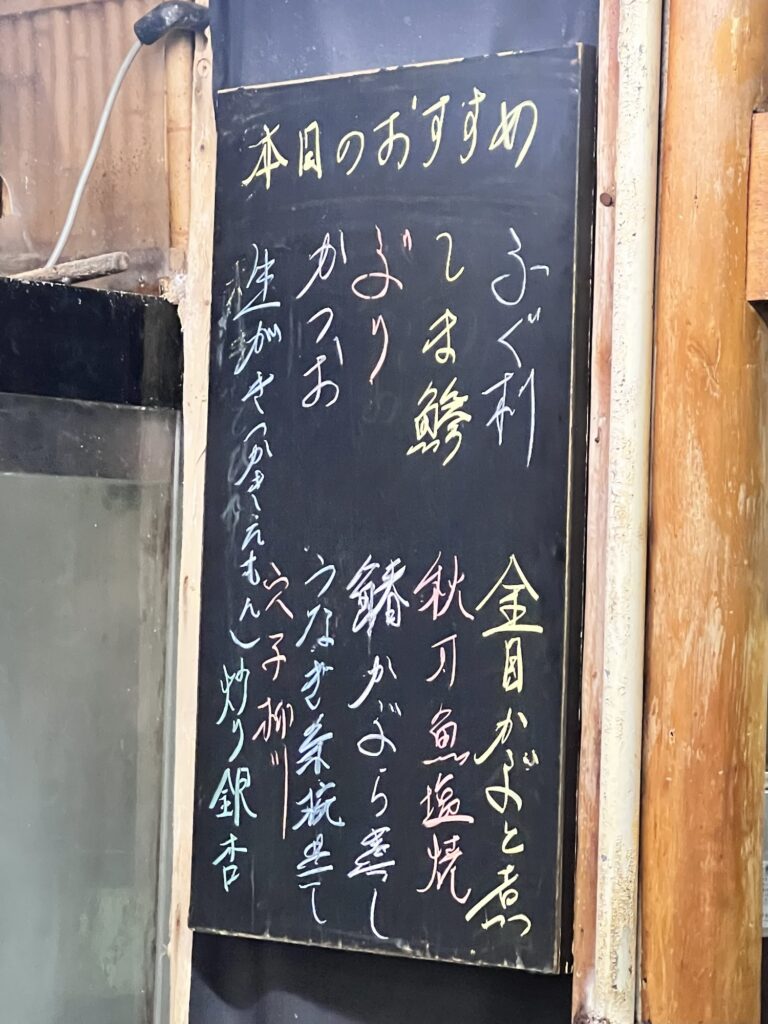 本日のおすすめ
ふぐ刺
しま鯵
ぶり
かつお
生がき(かきえもん)
金目かぶと煮
秋刀魚塩焼
鰆かぶら蒸し
うなぎ茶碗蒸し
穴子柳川
炒り銀杏